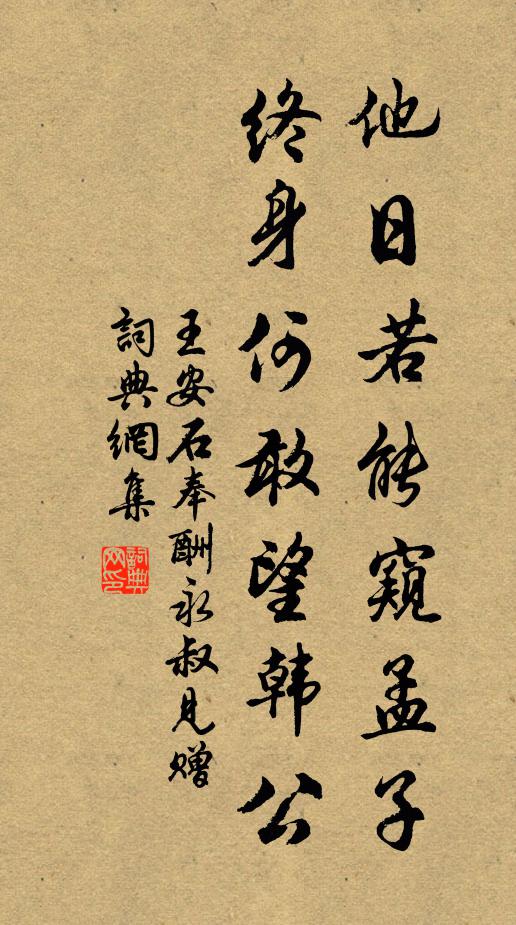 他日若能窺孟子
終身何敢望韩公
王安石奉酬永叔見赠
詞典網集
詞典网印